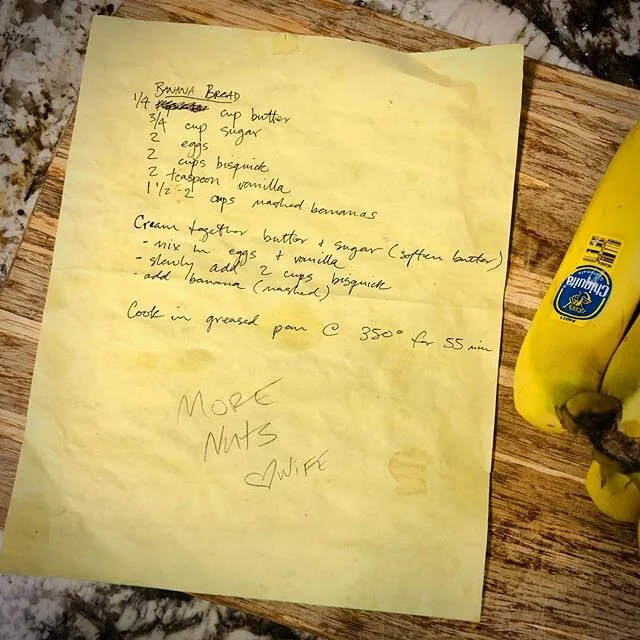 BANANA BREAD
1/4 cup butter
3/4 cup sugar
2 eggs
2 cups bisquick
2 teaspoon vanilla
1 1/2-2 cups mashed bananas
Cream together butter + sugar (soften butter)
- mix in eggs + vanilla
- slowly add 2 cups bisquick
- add banana (mashed)
Cook in greased pan @ 350° for 55 min
MORE
NUTS
♡WIFE
Chiquita